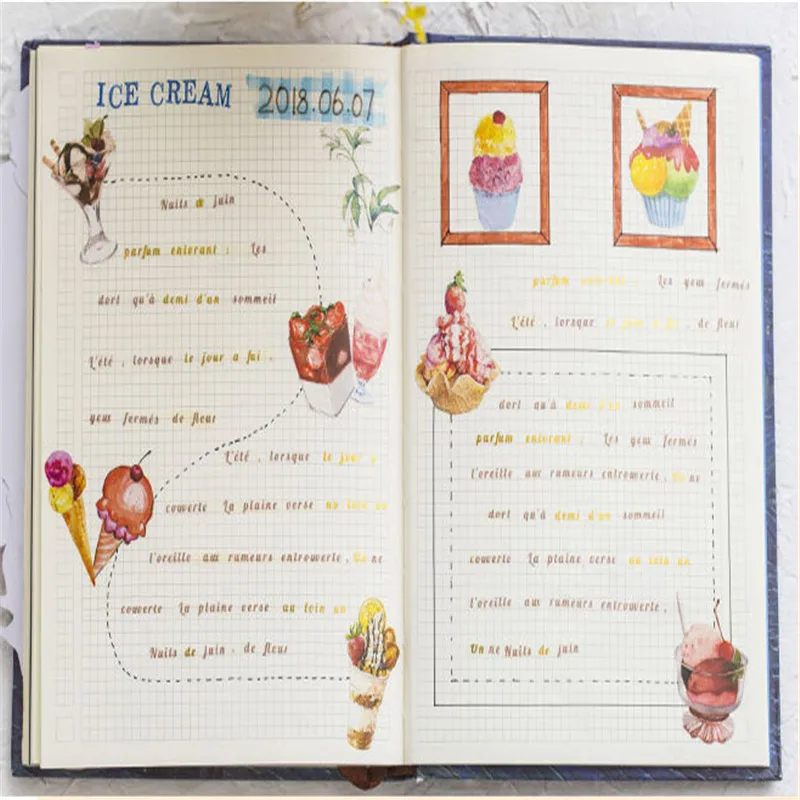 ICE CREAM 2018.06.07
Nuits de juin
parfum enivrant : Les
dort qu'à demi d'un sommeil
L'été , lorsque le jour a fui ,
yeux fermés de fleur
L'été , lorsque le jour a
couverte La plaine verse au loin un
l'oreille aux rumeurs entrouverte , Un ne
couverte La plaine verse au loin un
Nuits de juin , de fleur
parfum enivrant : Les yeux fermés
L'été , lorsque le jour a fui , de fleur
dort qu'à demi d'un sommeil
parfum enivrant : Les yeux fermés
l'oreille aux rumeurs entrouverte , Un ne
dort qu'à demi d'un sommeil
couverte La plaine verse au loin un
l'oreille aux rumeurs entrouverte ,
Un ne Nuits de juin